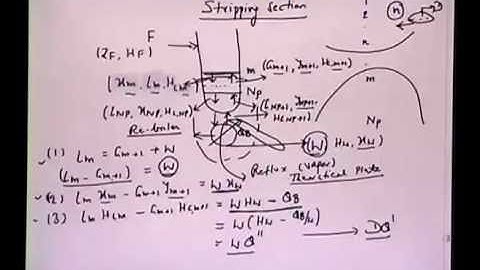 Stripping section
F
(ZF, HF)
(xm, Lm, HLm)
m
(Gm+1, ym+1, HGm+1)
Np
(LNp, xNp, HLNp)
(GNp+1, yNp+1, HGNp+1)
Re-boiler
QB
(W) HW, xW)
Reflux (vapor)
Theoretical Plate
(1) Lm = Gm+1 + W
(Lm - Gm+1) = W
(2) Lm xm - Gm+1 ym+1 = W xW
(3) Lm HLm - Gm+1 HGm+1 = W HW - QB
= W (HW - QB/W)
= W Q''
ΔQ'
1
2
n
m
Np
n